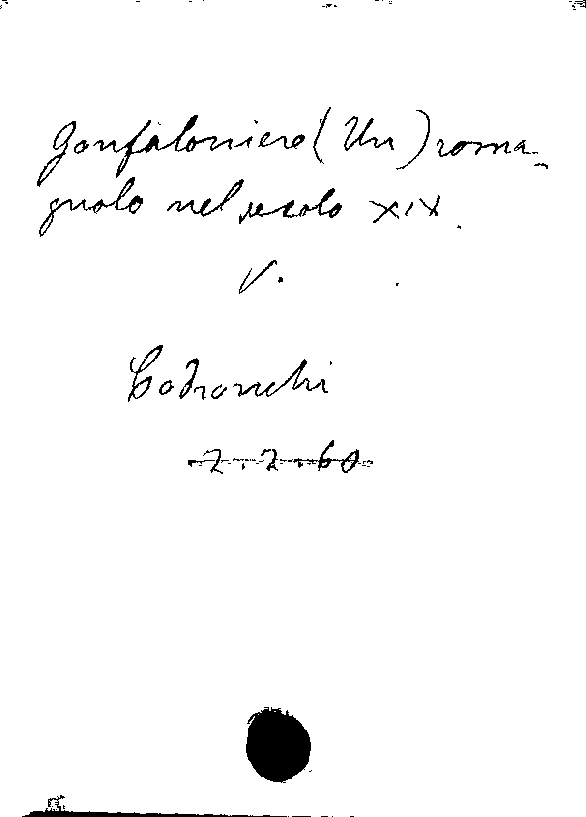 Gonfaloniero (Un) roma-
gnolo nel secolo XIX.
V.
Codronchi
2.2.60